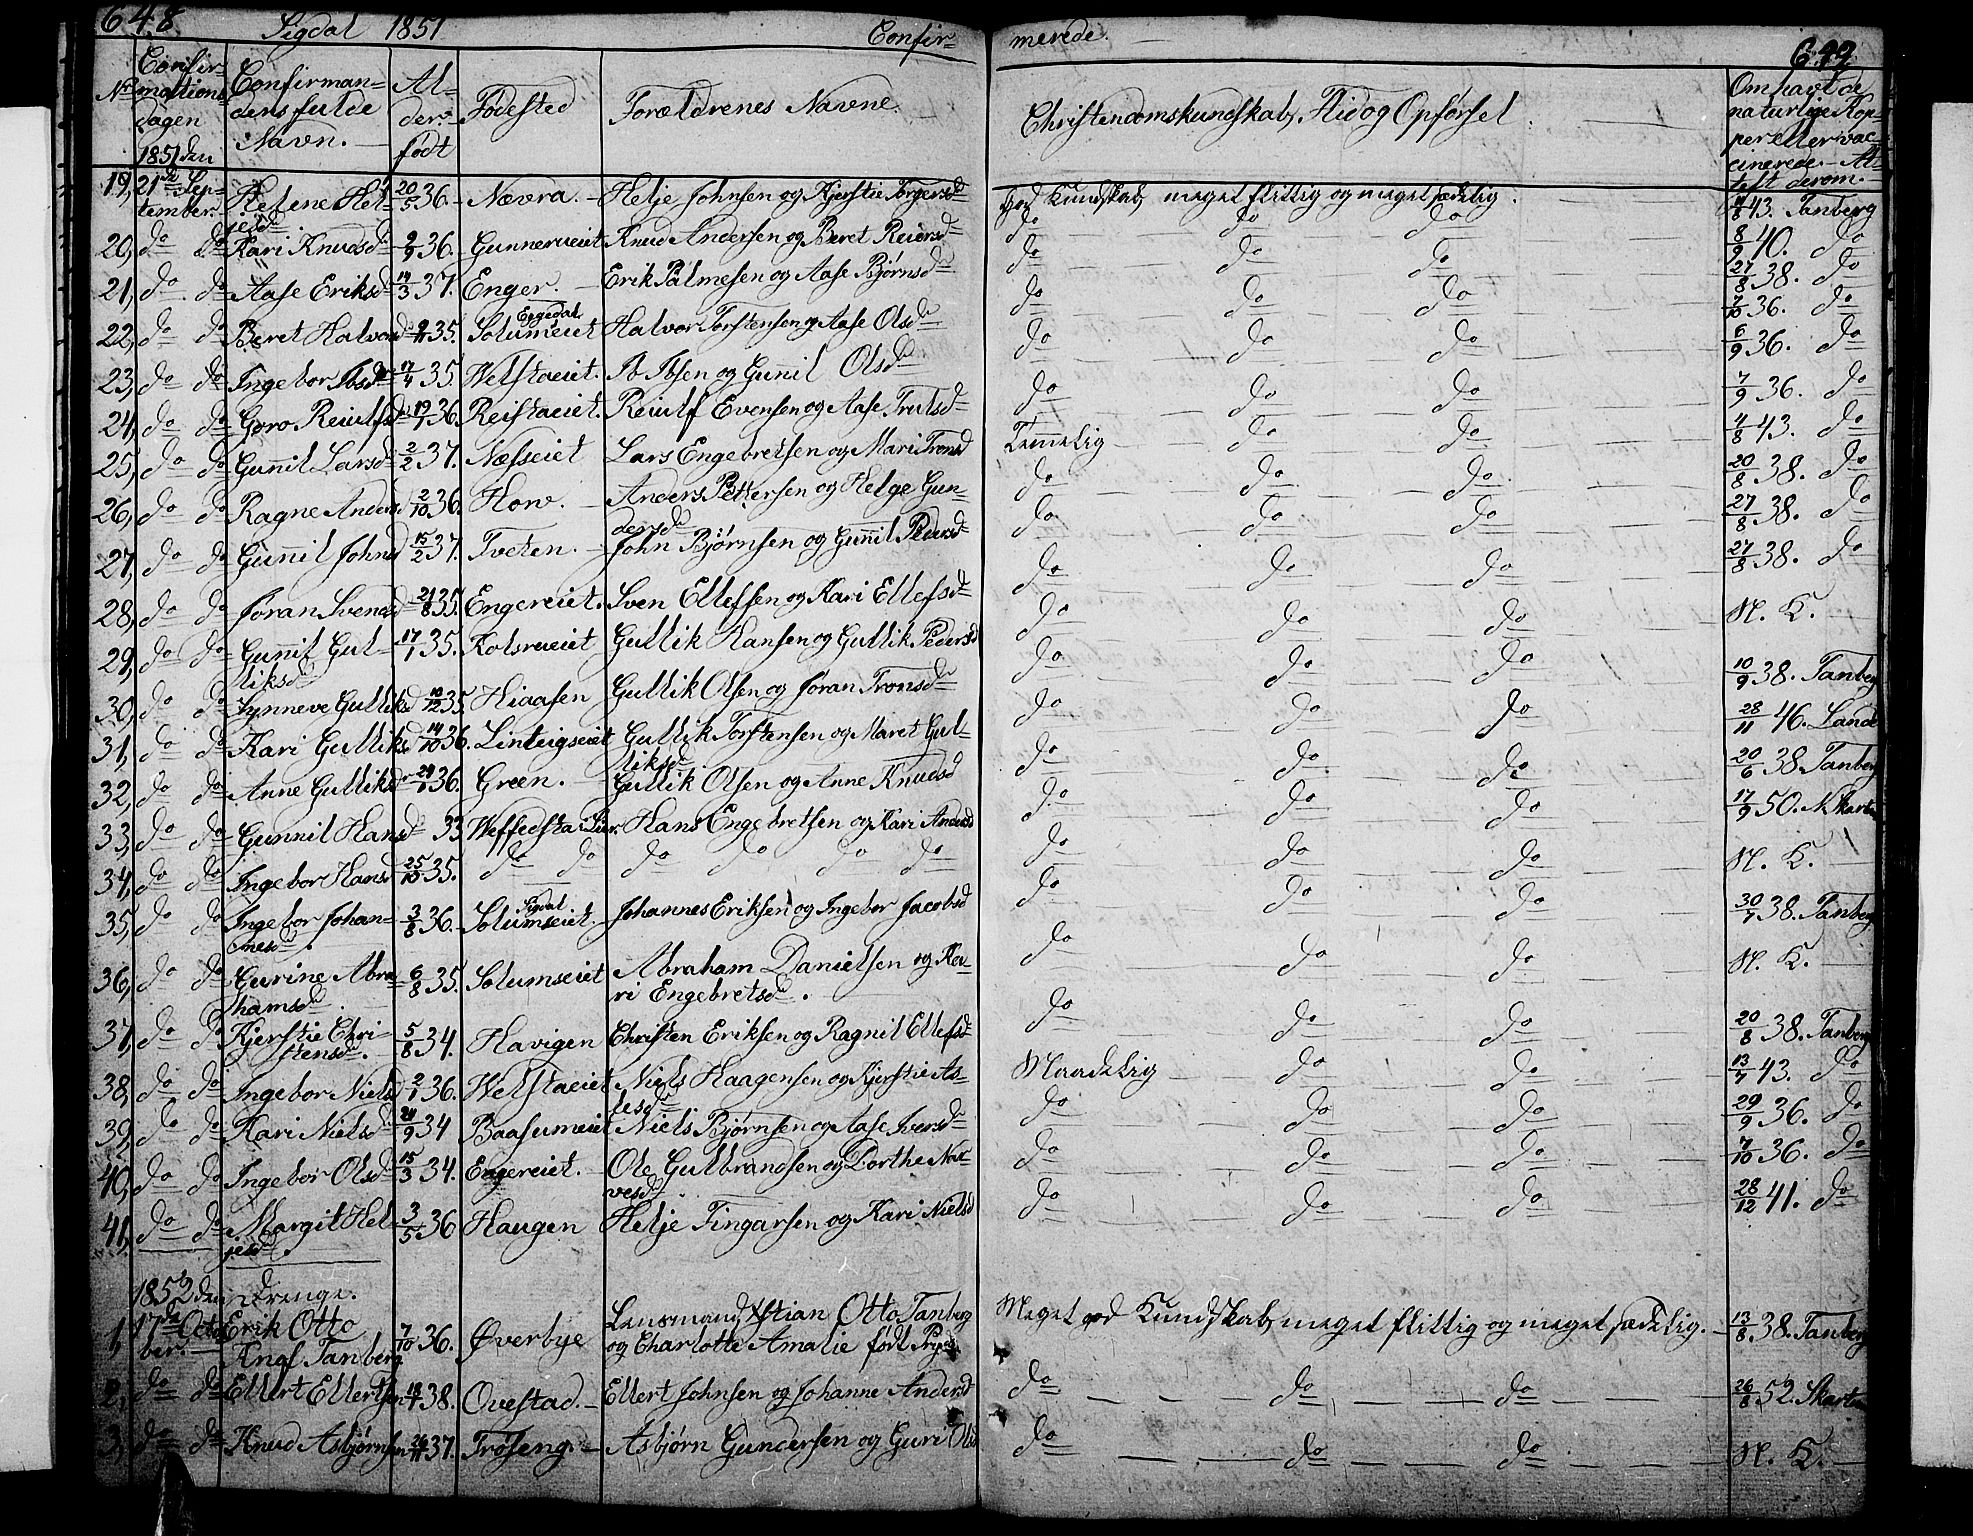 648 Sigdal 1851 Confir- merede. 649
Nr Confir-mations dagen 1851 den | Confirman-dens fulde Navn. | Al-der født | Fødested | Forældrenes Navne | Christendomskundskab, Flid og Opførsel | Om havt de naturlige Kop-per eller vac-cinerede. At-test derom.
19, 21de Sep-tember. Helene Hel-jesd 20/5 36. Nævra. Helje Johnsen og Kjerstie Torgersd God Kundskab, meget flittig og meget sædelig. 43. Tanberg
20, do do Kari Knudsd 36. Gunnerueiet Knud Andersen og Beret Reiersd do do do 8/9 40. do
21, do do Aase Eriksd 14/3 37. Enger. Erik Palmesen og Aase Bjørnsd do do do 27/8 38. do
22, do do Beret Halvorsd 35. Solumeiet Engedal Halvor Torstensen og Aase Olsd do do do 7/10 36. do
23, do do Ingebor Ibsd 17/4 35. Welstaeiet. Ib Ibsen og Gunil Olsd do do do 6/9 36. do
24, do do Goro Reiulfsd 19/7 36. Reistaeiet. Reiulf Evensen og Aase Trulsd do do do 7/9 36. do
25, do do Gunnil Larsd 2/2 37. Næsseiet Lars Engebretsen og Mari Tronsd Temmelig do do 4/8 43. do
26, do do Ragne Andersd 2/10 36. Horv. Anders Pettersen og Helge Gun-dersd do do do 20/8 38. do
27, do do Gunnil Johnsd 15/2 37. Tveten. John Bjørnsen og Gunnil Pedersd do do do 27/8 38. do
28, do do Joran Svensd 35. Engereiet. Sven Ellefsen og Kari Ellefsd do do do 27/8 38. do
29, do do Gunnil Gul-liksd 17/1 35. Kolsrueiet Gullik Hansen og Gullik Pedersd do do do N. K.
30, do do Synneve Gulliksd 10/12 35. Hiaasen Gullik Olsen og Joran Tronsd do do do 10/9 38. Tanberg
31, do do Kari Gulliksd 14/10 36. Linteigseiet Gullik Torstensen og Maret Gul-liksd do do do 28/11 46. Lande
32, do do Anne Gulliksd 36. Green. Gullik Olsen og Anne Knudsd do do do 20/6 38. Tanberg
33, do do Gunnil Hansd 33 Hans Engebretsen og Kari Andersd do do do 17/9 50. N. Skartu
34, do do Ingebor Hansd 25/10 35. do do do do do do do do do N. K.
35, do do Ingebor Johan-nesd. 3/8 36. Solumseiet. Sigdal Johannes Eriksen og Ingebor Jacobsd do do do 30/7 38. Tanberg
36, do do Gurine Abra-hamsd 6/8 35. Solumseiet Abraham Danielsen og Ka-ri Engebretsd. do do do N. K.
37, do do Kjerstie Chri-stensd. 5/8 34. Havigen Christen Eriksen og Ragnil Ellefsd do do do 20/8 38. Tanberg
38, do do Ingebor Nielsd 2/1 36. Welstaeiet Niels Haagensen og Kjerstie As-lesd Maadelig do do 13/7 43. do
39, do do Kari Nielsd 34 Baasumeiet Niels Bjørnsen og Aase Iversd do do do 29/9 36. do
40, do do Ingebor Olsd 15/3 34. Engereiet. Ole Gulbrandsen og Dorthe Nar-vesd do do do 7/10 36. do
41, do do Margit Hel-jesd. 3/5 36 Haugen Helje Tingarsen og Kari Nielsd do do do 28/12 41. do
1852 den Drenge.
1, 17de Octo-ber. Erik Otto Knuf Tanberg 7/10 36. Øverbye Lensmand Xstian Otto Tanberg og Charlotte Amalie født Meget god Kundskab, meget flittig og meget sædelig. 13/8 38. Tanberg
2, do do Ellert Ellertsen 38. Ovestad. Ellert Johnsen og Johanne Andersd do do do 26/8 52. Skartu
3, do do Knud Asbjørnsen 37. Trøseng. Asbjørn Gundersen og Guri Olsd do do do N. K.